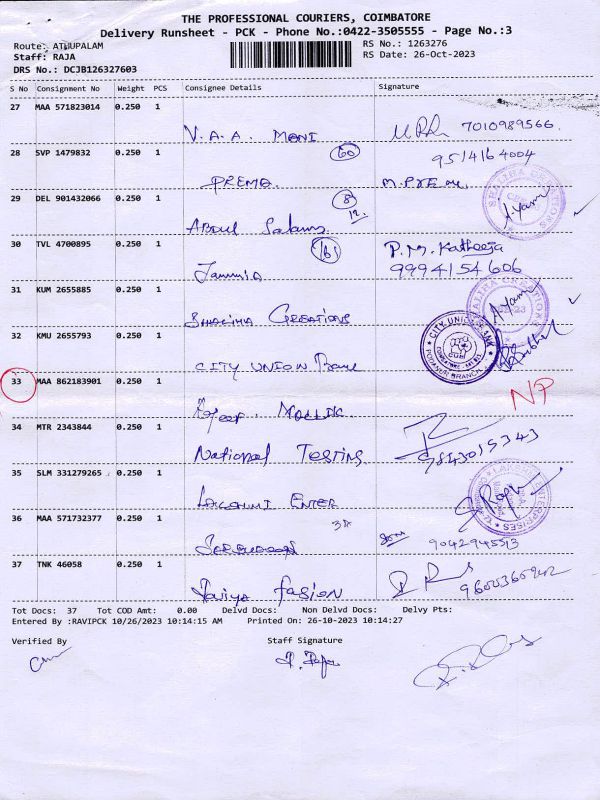 THE PROFESSIONAL COURIERS, COIMBATORE
Delivery Runsheet - PCK - Phone No.:0422-3505555 - Page No.:3
Route: ATHUPALAM
RS No.: 1263276
Staff: RAJA
RS Date: 26-Oct-2023
DRS No.: DCJB126327603
S No Consignment No Weight PCS Consignee Details Signature
27 MAA 571823014 0.250 1
V.A.A. Mani 7010989566
28 SVP 1479832 0.250 1
60 9514164004
PREMA
29 DEL 901432066 0.250 1
8
Abdul Salam
30 TVL 4700895 0.250 1
161 P.M. Katheeja
9994154606
31 KUM 2655885 0.250 1
Shaliha Creations
32 KMU 2655793 0.250 1
CITY UNION Bank
CITY UNION BANK
33 MAA 862183901 0.250 1
NP
34 MTR 2343844 0.250 1
National Testing 9843015343
35 SLM 331279265 0.250 1
Lakshmi Enter
36 MAA 571732377 0.250 1
9042945513
37 TNK 46058 0.250 1
Fasion
Tot Docs: 37 Tot COD Amt: 0.00 Delvd Docs: Non Delvd Docs: Delvy Pts:
Entered By :RAVIPCK 10/26/2023 10:14:15 AM Printed On: 26-10-2023 10:14:27
Verified By Staff Signature